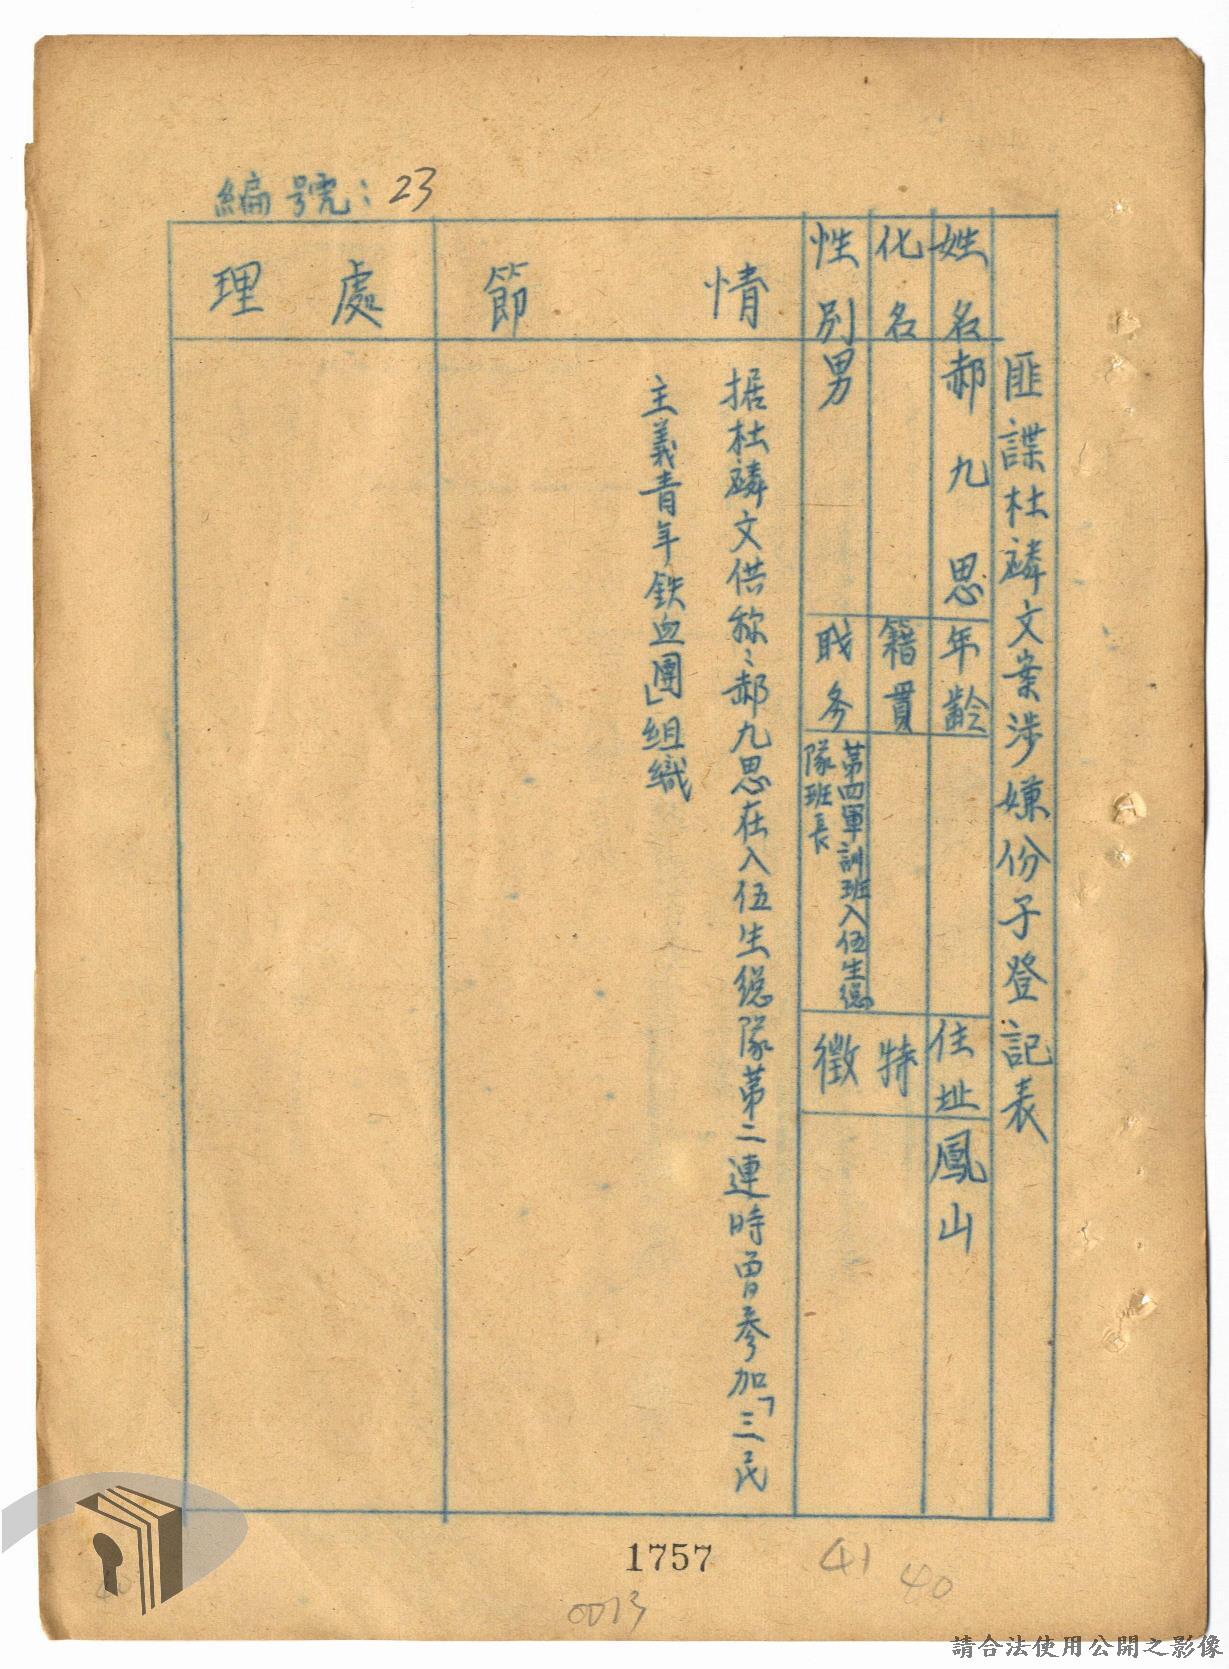 編號：23
匪諜杜麟文案涉嫌份子登記表
姓名
郝九思
年齡
住址
鳳山
化名
籍貫
特徵
性別
男
職务
第四軍訓班入伍生總
隊班長
情節
据杜麟文供称：郝九思在入伍生總隊第二連時曾參加「三民
主義青年鉄血團」組織
處理
1757
41
40
0013
40
請合法使用公開之影像